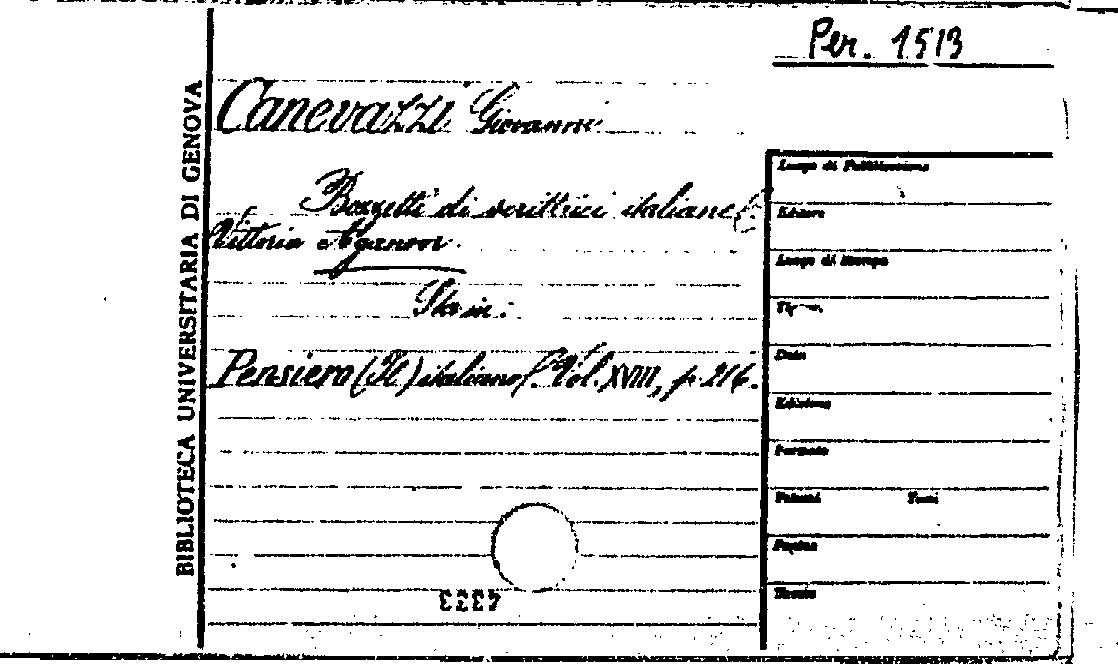 Per. 1513
BIBLIOTECA UNIVERSITARIA DI GENOVA
Canevazzi Giovanni
Bozzetti di scrittrici italiane(
Vittoria Aganoor.
Sta in:
Pensiero (Il) italiano/. Vol. XVIII, p. 216.
Luogo di Pubblicazione
Editore
Luogo di Stampa
Tip.
Data
Edizione
Formato
Volumi Tomi
Pagine
Tavole